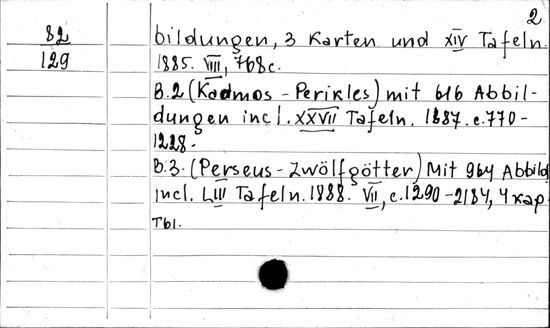 2
82
129
bildungen, 3 Karten und XIV Tafeln.
1885. VIII, 768 с.
B.2 (Kadmos - Perikles) mit 616 Abbil-
dungen incl. XXVII Tafeln. 1887. с. 770-
1228.
B.3. (Perseus - Zwölfgötter) Mit 964 Abbild
incl. LIII Tafeln. 1888. VII, с. 1290-2184, 4 кар
ты.